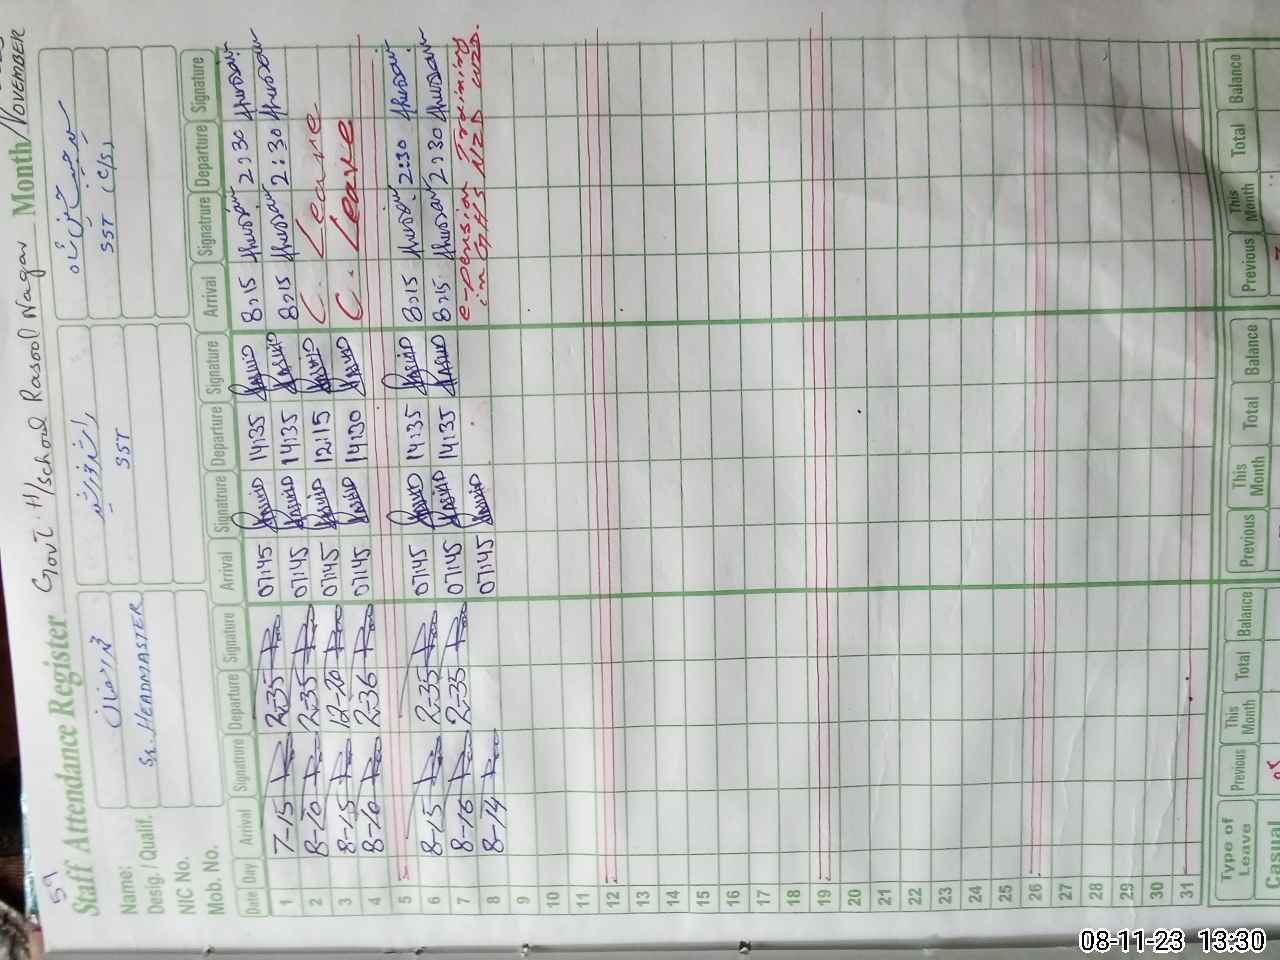 59
Staff Attendance Register Govt. H/School Rasool Nagar Month/NOVEMBER
Name: محمد رمضان
Desig./Qualif. Sr. HEADMASTER SST SST (C/S)
NIC No.
Mob. No.
Date Day Arrival Signatrure Departure Signature Arrival Signatrure Departure Signature Arrival Signatrure Departure Signature
1 7-15 2-35 07:45 Rashid 14:35 Rashid 8:15 2:30
2 8-10 2-35 07:45 Rashid 14:35 Rashid 8:15 2:30
3 8-15 12-20 07:45 Rashid 12:15 Rashid C. Leave
4 8-10 2-36 07:45 Rashid 14:30 Rashid C. Leave
5
6 8-15 2-35 07:45 Rashid 14:35 Rashid 8:15 2:30
7 8-16 2-35 07:45 Rashid 14:35 Rashid 8:15 2:30
8 8-14 07:45 Rashid e-pension Training in GHS WZD WZD.
9
10
11
12
13
14
15
16
17
18
19
20
21
22
23
24
25
26
27
28
29
30
31
Type of Leave Previous This Month Total Balance Previous This Month Total Balance Previous This Month Total Balance
Casual
08-11-23 13:30